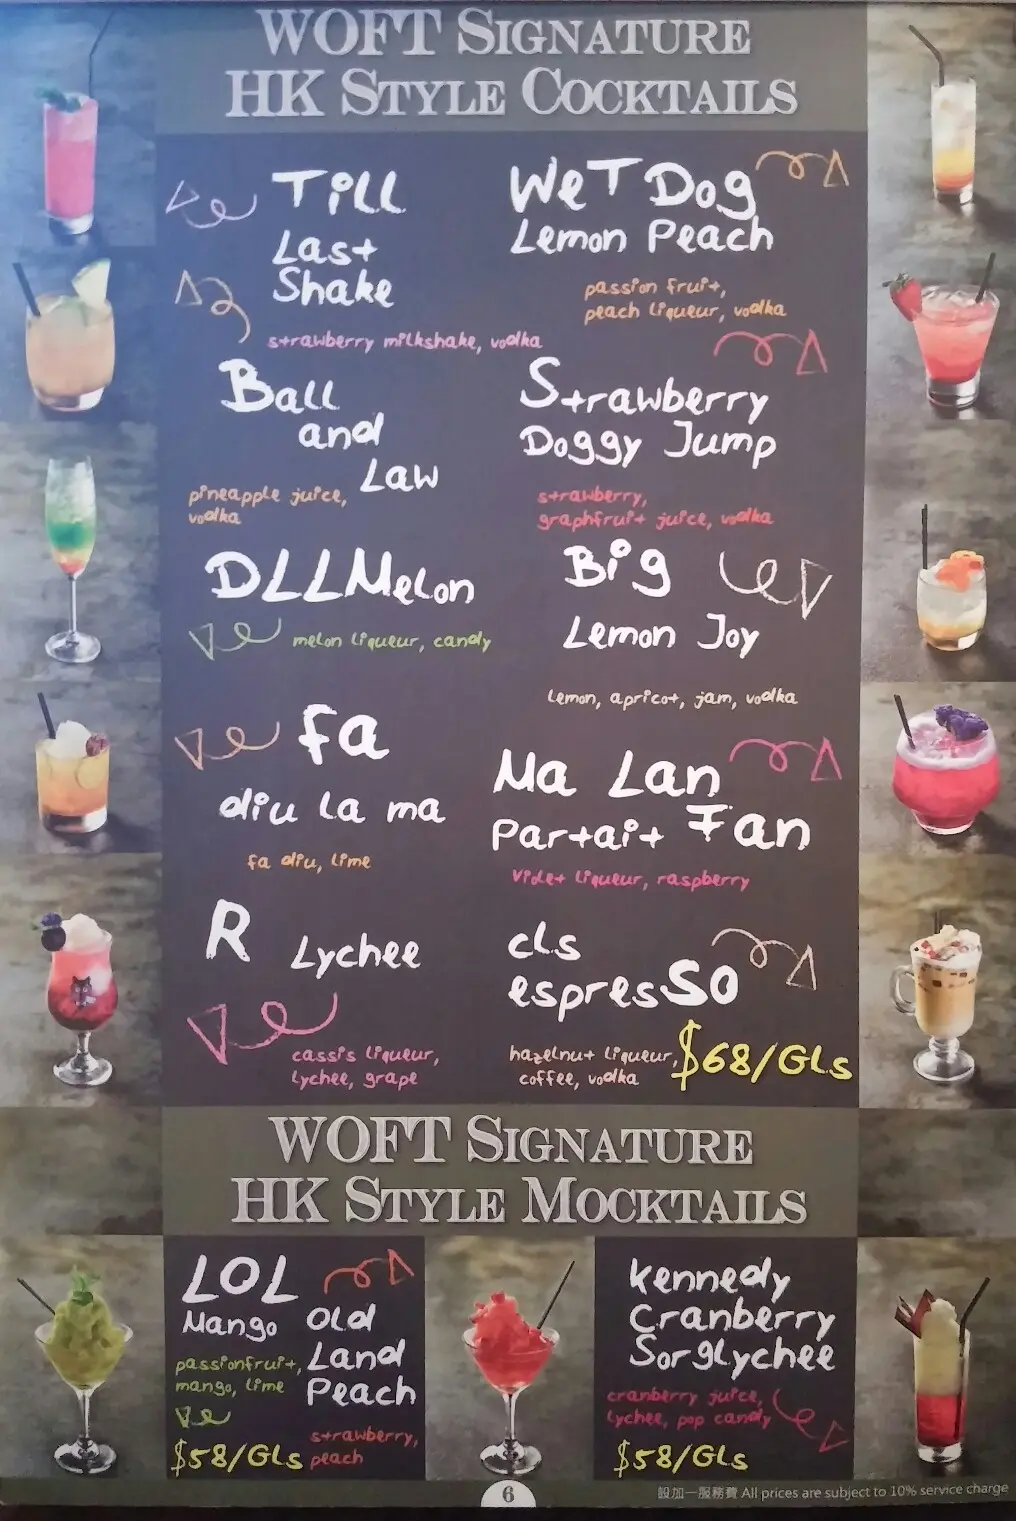 WOFT SIGNATURE
HK STYLE COCKTAILS
Till
Last
Shake
strawberry milkshake, vodka
Wet Dog
Lemon Peach
passion fruit,
peach liqueur, vodka
Ball
and
Law
pineapple juice,
vodka
Strawberry
Doggy Jump
strawberry,
graphfruit juice, vodka
DLLMelon
melon liqueur, candy
Big
Lemon Joy
lemon, apricot, jam, vodka
fa
diu la ma
fa diu, lime
Ma Lan
Partait Fan
violet liqueur, raspberry
R Lychee
cassis liqueur,
lychee, grape
cls
espresSo
hazelnut liqueur,
coffee, vodka
$68/GLs
WOFT SIGNATURE
HK STYLE MOCKTAILS
LOL
Mango
passionfruit,
mango, lime
$58/GLs
Old
Land
Peach
strawberry,
peach
kennedy
Cranberry
Sorglychee
cranberry juice,
lychee, pop candy
$58/GLs
6
設加一服務費 All prices are subject to 10% service charge